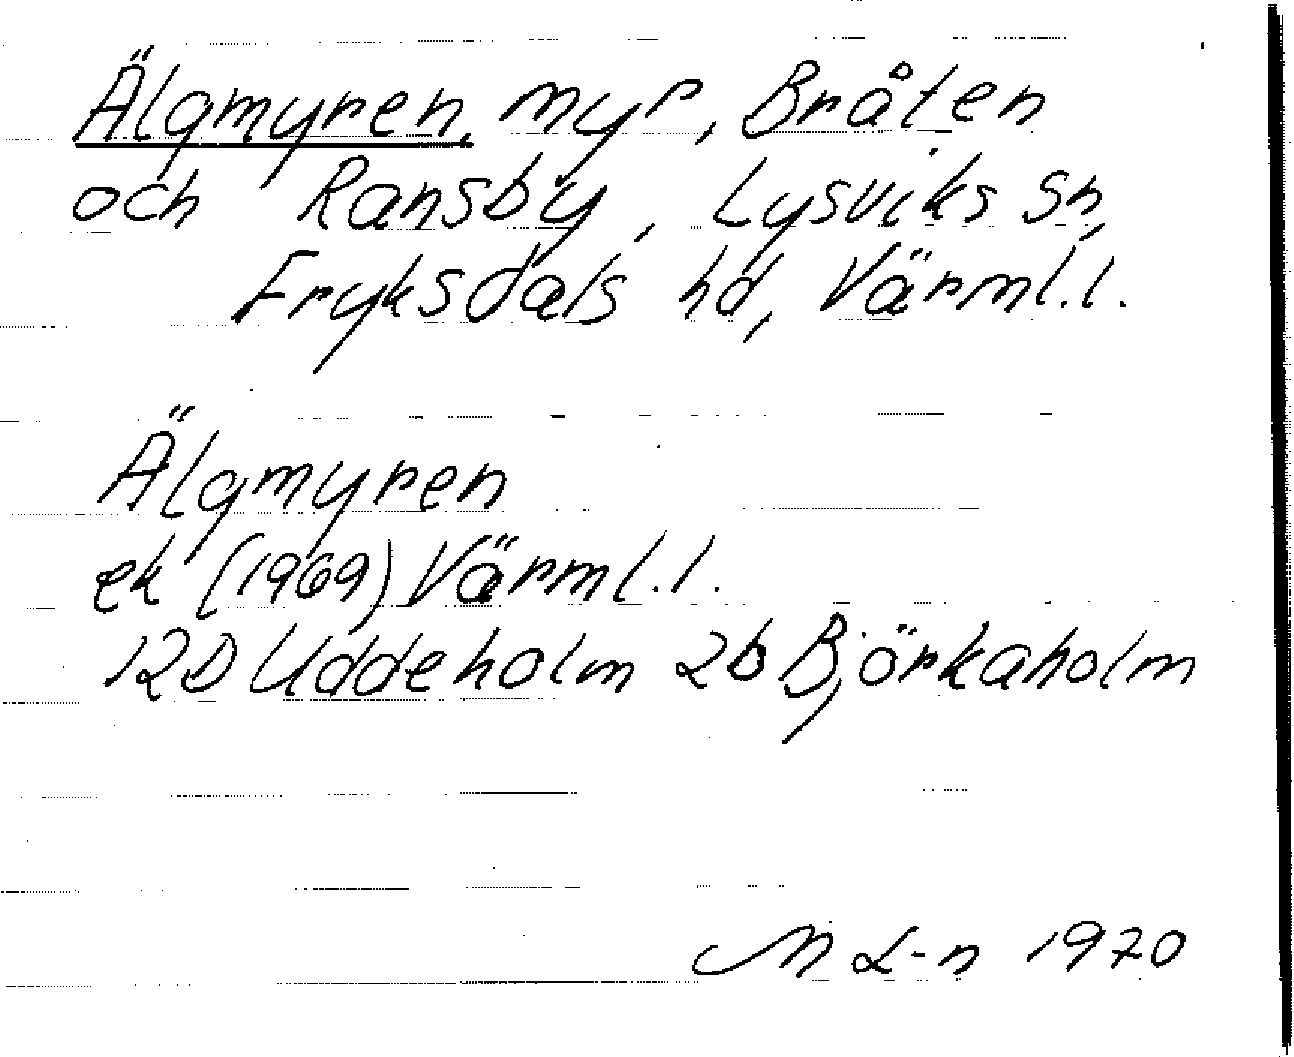 Älgmyren, myr, Bråten
och Ransby, Lysviks sn,
Fryksdals hd, Värml. l.
Älgmyren
ek (1969) Värml. l.
12D Uddeholm 2b Björkaholm
M L-n 1970